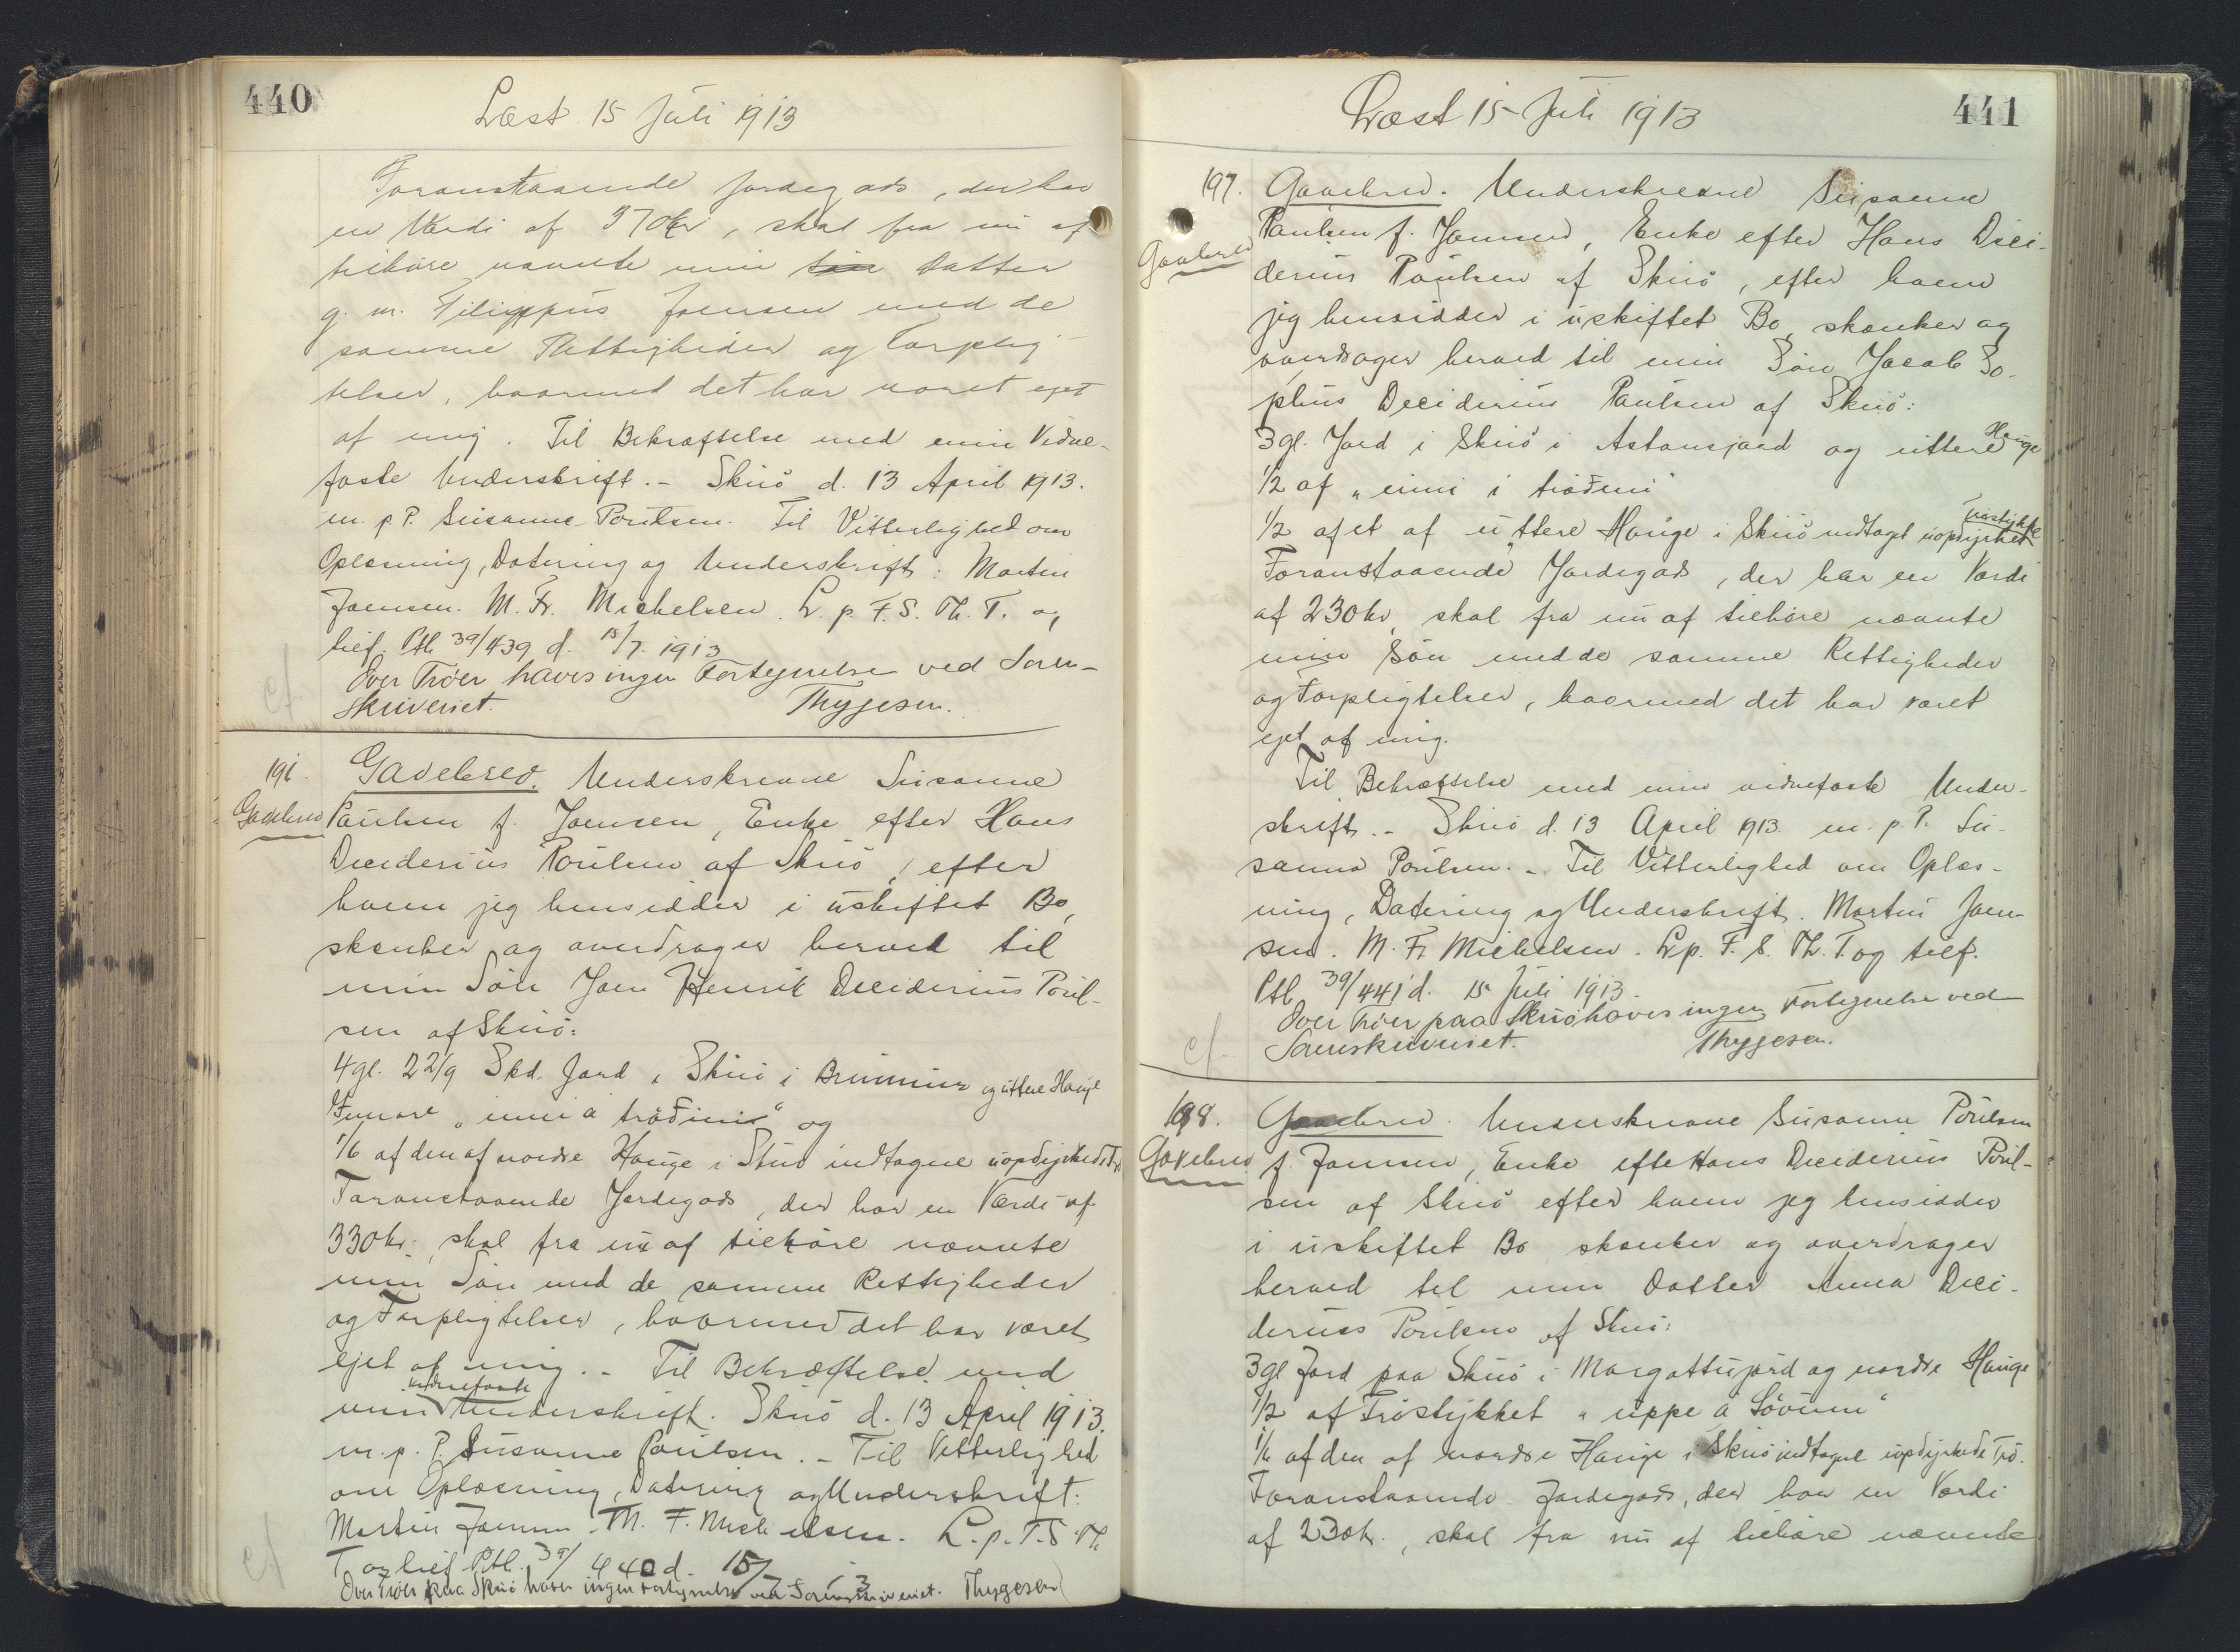 440
Læst 15 Juli 1913
Foranstaaende Jordegods, der har
en Værdi af 370 Kr, skal fra nu af
tilhøre nævnte min Datter
g. m. Filippus Joensen med de
samme Rettigheder og Forplig-
telser, hvormed det har været ejet
af mig. Til Bekræftelse med min Vidne-
faste Underskrift. – Skuø d. 13 April 1913.
m. p. P. Susanne Poulsen. Til Vitterlighed om
Oplæsning, Datering og Underskrift: Martin
Joensen. M. Fr. Michelsen. L. p. F. S. Th. T. og
tilf. Ptl 39/439 d. 15/7. 1913
Over Trøer haves ingen Fortegnelse ved Soren-
skriveriet. Thygesen.
cf
196.
Gavebrev
Gavebrev. Underskrevne Susanne
Paulsen f. Joensen, Enke efter Hans
Deciderius Poulsen af Skuø, efter
hvem jeg hensidder i uskiftet Bo,
skænker og overdrager herved til
min Søn Joen Henrik Deciderius Poul-
sen af Skuø:
4 gl. 2 2/9 Skd. Jord i Skuø i Brunnum og uttere Hauge
Innare "inni á trøðini" og
1/6 af den af nordre Hauge i Skuø indtagne uopdyrkede Trø
Foranstaaende Jordegods, der har en Værdi af
330 kr., skal fra nu af tilhøre nævnte
min Søn med de samme Rettigheder
og Forpligtelser, hvormed det har været
ejet af mig. – Til Bekræftelse med
min vidnefaste Underskrift. Skuø d. 13 April 1913.
m. p. P. Susanne Poulsen. – Til Vitterlighed
om Oplæsning, Datering og Underskrift:
Martin Joensen. M. F. Michelsen. L. p. F. S. Th.
T. og tilf. Ptl. 39/440 d. 15/7 – 13
Over Trøer paa Skuø haves ingen Fortegnelse ved Sorenskriveriet. Thygesen
cf
441
Læst 15 Juli 1913
197.
Gavebrev
Gavebrev. Underskrevne Susanne
Paulsen f. Joensen, Enke efter Hans Deci-
derius Poulsen af Skuø, efter hvem
jeg hensidder i uskiftet Bo, skænker og
overdrager herved til min Søn Jacob So-
phus Deciderius Paulsen af Skuø:
3 gl. Jord i Skuø i Astansjord og uttere Hauge
1/2 af "inni i trøðini"
1/2 af et af uttere Hauge i Skuø indtaget uopdyrket Trøstykke
Foranstaaende Jordegods, der har en Værdi
af 230 kr, skal fra nu af tilhøre nævnte
min Søn med de samme Rettigheder
og Forpligtelser, hvormed det har været
ejet af mig.
Til Bekræftelse med min vidnefaste Under-
skrift. – Skuø d. 13 April 1913. m. p. P. Su-
sanna Poulsen. – Til Vitterlighed om Oplæs-
ning, Datering og Underskrift. Martin Joen-
sen. M. Fr Michelsen. L. p. F. S. Th. T. og tilf.
Ptl 39/441 d. 15 Juli 1913.
Over Trøer paa Skuø haves ingen Fortegnelse ved
Sorenskriveriet. Thygesen.
cf
198.
Gavebrev
Gavebrev. Underskrevne Susanne Poulsen
f. Joensen, Enke efter Hans Deciderius Poul-
sen af Skuø efter hvem jeg hensidder
i uskiftet Bo skænker og overdrager
herved til min Datter Anna Deci-
derius Poulsen af Skuø:
3 gl Jord paa Skuø i Margattujørd og nordre Hauge
1/2 af Trøstykket "uppe á Løvum"
1/6 af den af nordre Hauge i Skuø indtagne uopdyrkede Trø.
Foranstaaende Jordegods, der har en Værdi
af 230 kr., skal fra nu af tilhøre nævnte